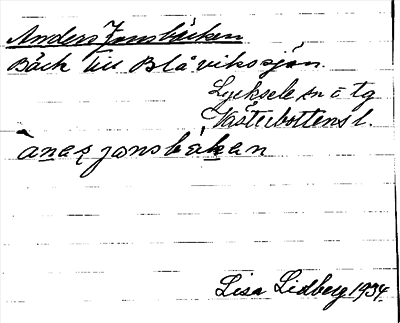 Anders Jonsbäcken
Bäck till Blåvikssjön.
Lycksele sn = tg
Västerbottens l.
ànas jonsbäkan
Lisa Lidberg 1934.